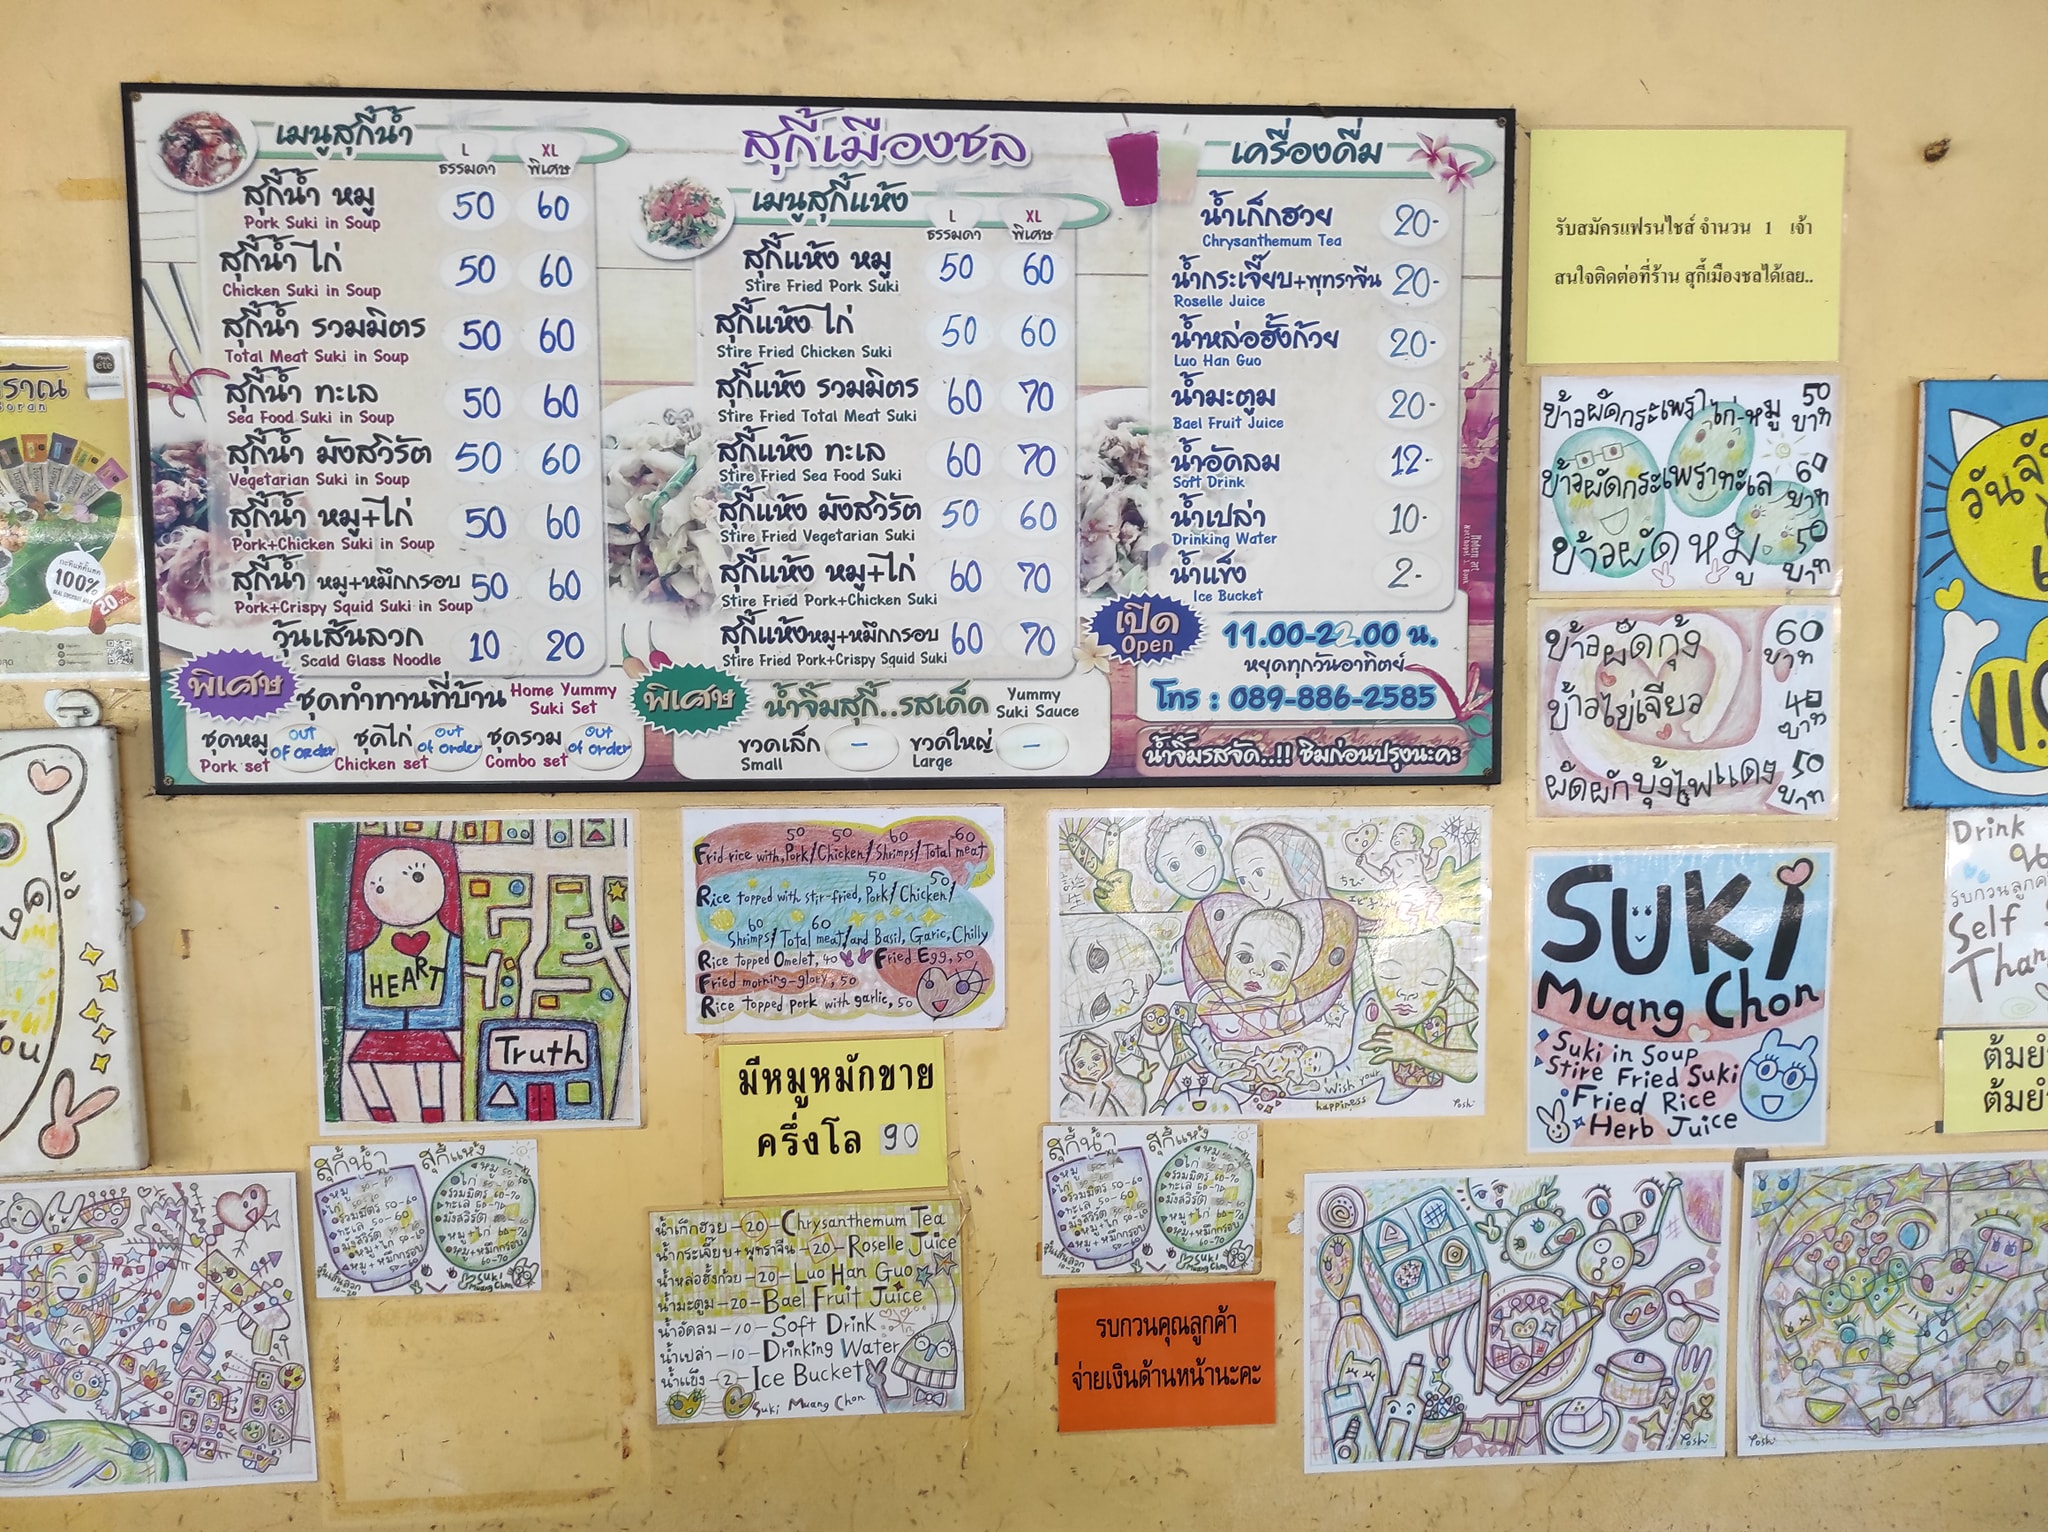 สุกี้เมืองชล
เมนูสุกี้น้ำ
L ธรรมดา
XL พิเศษ
สุกี้น้ำ หมู 50 60
Pork Suki in Soup
สุกี้น้ำ ไก่ 50 60
Chicken Suki in Soup
สุกี้น้ำ รวมมิตร 50 60
Total Meat Suki in Soup
สุกี้น้ำ ทะเล 50 60
Sea Food Suki in Soup
สุกี้น้ำ มังสวิรัต 50 60
Vegetarian Suki in Soup
สุกี้น้ำ หมู+ไก่ 50 60
Pork+Chicken Suki in Soup
สุกี้น้ำ หมู+หมึกกรอบ 50 60
Pork+Crispy Squid Suki in Soup
วุ้นเส้นลวก 10 20
Scald Glass Noodle
พิเศษ ชุดทำทานที่บ้าน Home Yummy Suki Set
ชุดหมู out of order ชุดไก่ out of order ชุดรวม out of order
Pork set Chicken set Combo set
เมนูสุกี้แห้ง
L ธรรมดา
XL พิเศษ
สุกี้แห้ง หมู 50 60
Stire Fried Pork Suki
สุกี้แห้ง ไก่ 50 60
Stire Fried Chicken Suki
สุกี้แห้ง รวมมิตร 60 70
Stire Fried Total Meat Suki
สุกี้แห้ง ทะเล 60 70
Stire Fried Sea Food Suki
สุกี้แห้ง มังสวิรัต 50 60
Stire Fried Vegetarian Suki
สุกี้แห้ง หมู+ไก่ 60 70
Stire Fried Pork+Chicken Suki
สุกี้แห้งหมู+หมึกกรอบ 60 70
Stire Fried Pork+Crispy Squid Suki
พิเศษ น้ำจิ้มสุกี้..รสเด็ด Yummy Suki Sauce
ขวดเล็ก - ขวดใหญ่ -
Small Large
เครื่องดื่ม
น้ำเก็กฮวย 20-
Chrysanthemum Tea
น้ำกระเจี๊ยบ+พุทราจีน 20-
Roselle Juice
น้ำหล่อฮั้งก้วย 20-
Luo Han Guo
น้ำมะตูม 20-
Bael Fruit Juice
น้ำอัดลม 12-
Soft Drink
น้ำเปล่า 10-
Drinking Water
น้ำแข็ง 2-
Ice Bucket
เปิด Open 11.00-22.00 น.
หยุดทุกวันอาทิตย์
โทร : 089-886-2585
น้ำจิ้มรสจัด..!! ชิมก่อนปรุงนะคะ
รับสมัครแฟรนไชส์ จำนวน 1 เจ้า
สนใจติดต่อที่ร้าน สุกี้เมืองชลได้เลย..
ข้าวผัดกระเพราไก่-หมู 50 บาท
ข้าวผัดกระเพราทะเล 60 บาท
ข้าวผัดหมู 50 บาท
ข้าวผัดกุ้ง 60 บาท
ข้าวไข่เจียว 40 บาท
ผัดผักบุ้งไฟแดง 50 บาท
SUKi
Muang Chon
Suki in Soup
Stire Fried Suki
Fried Rice
Herb Juice
100%
HEART
Truth
50 50 60 60
Frid rice with, Pork/Chicken/Shrimps/Total meat
50 50
Rice topped with stir-fried, Pork/Chicken/
60 60
Shrimps/Total meat/and Basil, Garic, Chilly
Rice topped Omelet, 40 Fried Egg, 50
Fried morning-glory, 50
Rice topped pork with garlic, 50
มีหมูหมักขาย
ครึ่งโล 90
Wish your happiness
Yoshi
สุกี้น้ำ สุกี้แห้ง
น้ำเก็กฮวย-20-Chrysanthemum Tea
น้ำกระเจี๊ยบ+พุทราจีน-20-Roselle Juice
น้ำหล่อฮั้งก้วย-20-Luo Han Guo
น้ำมะตูม-20-Bael Fruit Juice
น้ำอัดลม-10-Soft Drink
น้ำเปล่า-10-Drinking Water
น้ำแข็ง-2-Ice Bucket
Suki Muang Chon
สุกี้น้ำ สุกี้แห้ง
รบกวนคุณลูกค้า
จ่ายเงินด้านหน้านะคะ
Drink
รบกวนลูกค้า
Self
ต้มยำ
ต้มยำ
Yoshi
Yoshi